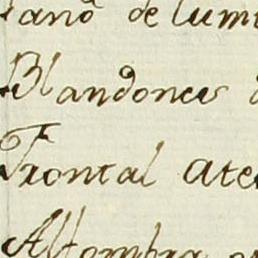 de lumi
Blandones
Frontal ate
Alfombra